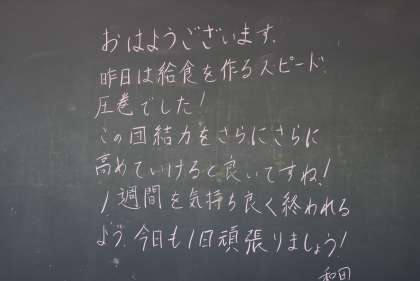 おはようございます.
昨日は給食を作るスピード.
圧巻でした!
この団結力をさらにさらに
高めていけると良いですね!
1週間を気持ち良く終われる
よう.今日も1日頑張りましょう!
和田